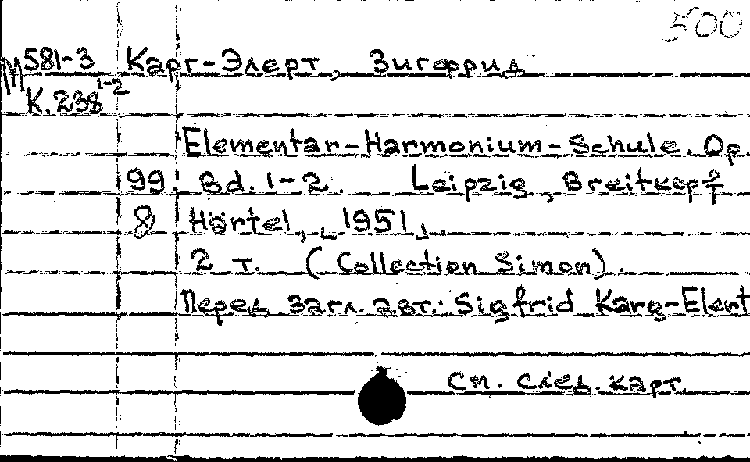 500
М581-3 Карг-Элерт, Зигфрид
К.238 1-2
Elementar-Harmonium-Schule. Op.
99. Bd. 1-2. Leipzig, Breitkopf
8 Härtel, [1951].
2 т. (Collection Simon).
Перед загл. авт.: Sigfrid Karg-Elert
См. след. карт.